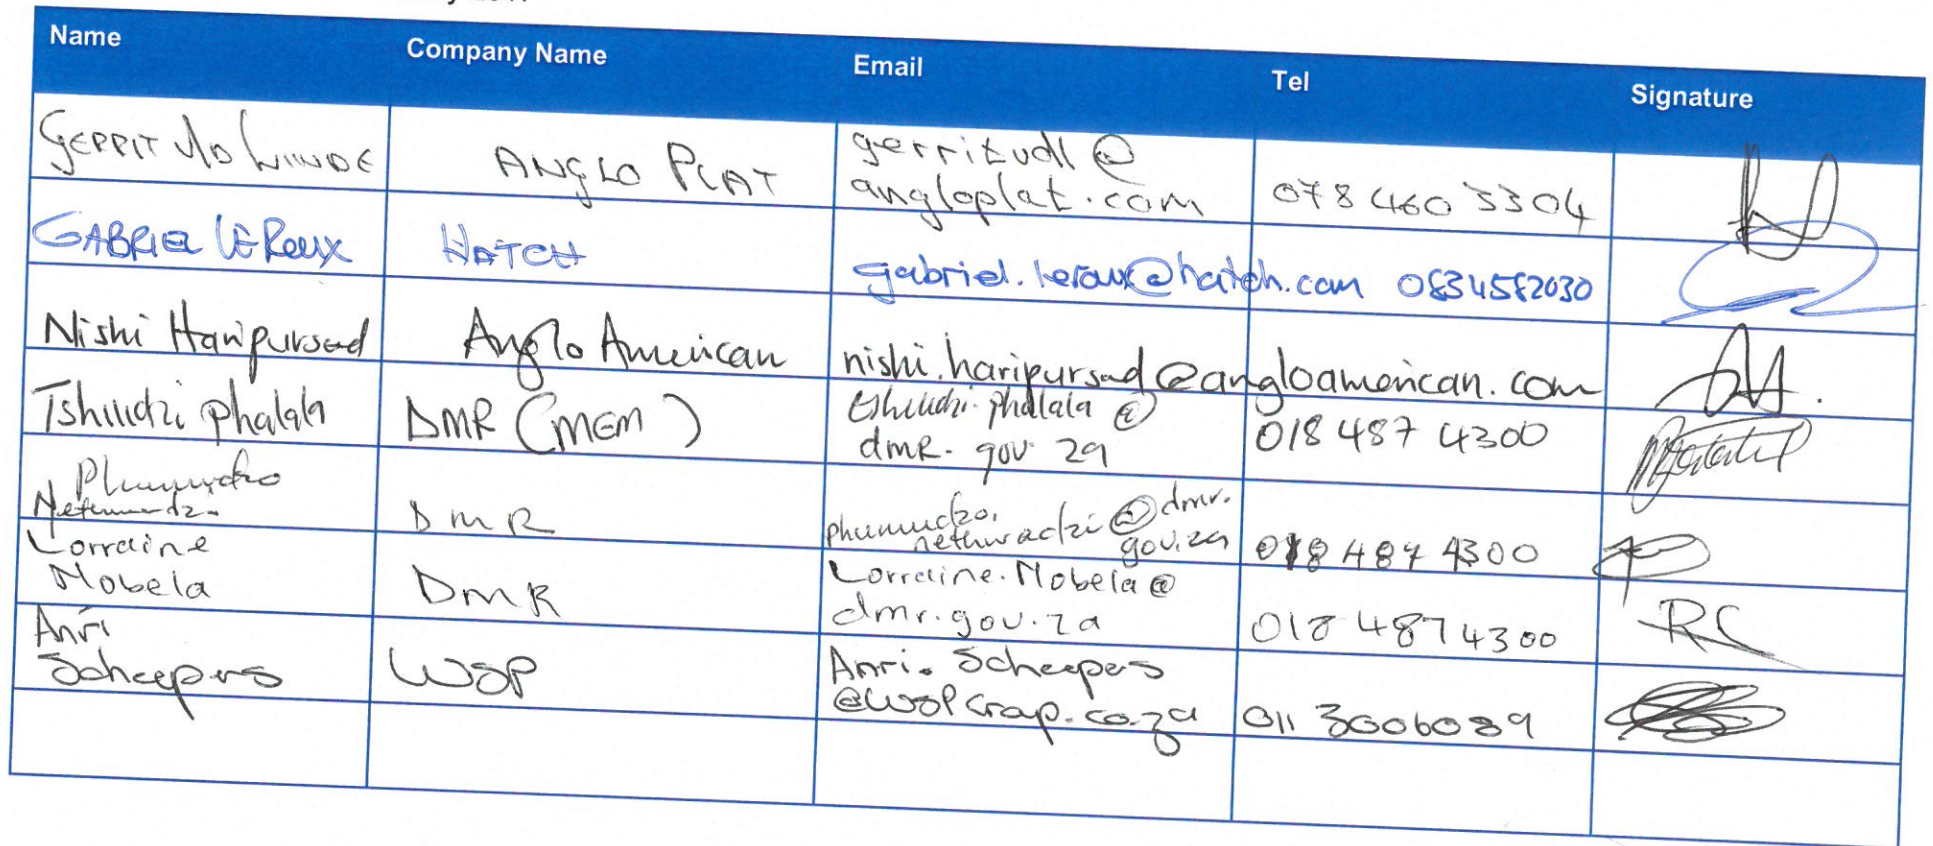 Name Company Name Email Tel Signature
GERRIT VD LINDE ANGLO PLAT gerritvdl@
angloplat.com 078 460 3304
GABRIEL LE ROUX HATCH gabriel.leroux@hatch.com 0834582030
Nishi Haripursad Anglo American nishi.haripursad@angloamerican.com
Tshilidzi phalala DMR (MEM) tshilidzi.phalala@
dmR.gov.za 018 487 4300
Phumudzo
DMR phumudzo.
@dmr.
gov.za 018 487 4300
Lorraine
Mobela DMR Lorraine.Mobela@
dmr.gov.za 018 487 4300
Anri
Scheepers WSP Anri.Scheepers
@WSPGroup.co.za 011 3006089